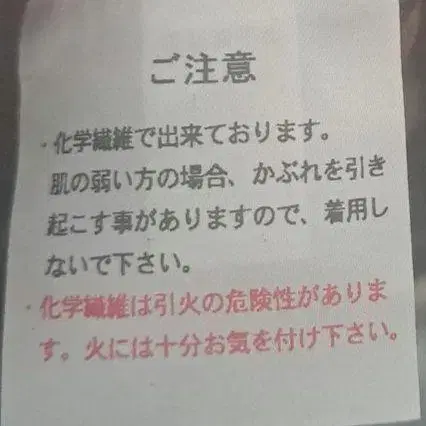 ご注意
・化学繊維で出来ております。
肌の弱い方の場合、かぶれを引き
起こす事がありますので、着用し
ないで下さい。
・化学繊維は引火の危険性がありま
す。火には十分お気を付け下さい。